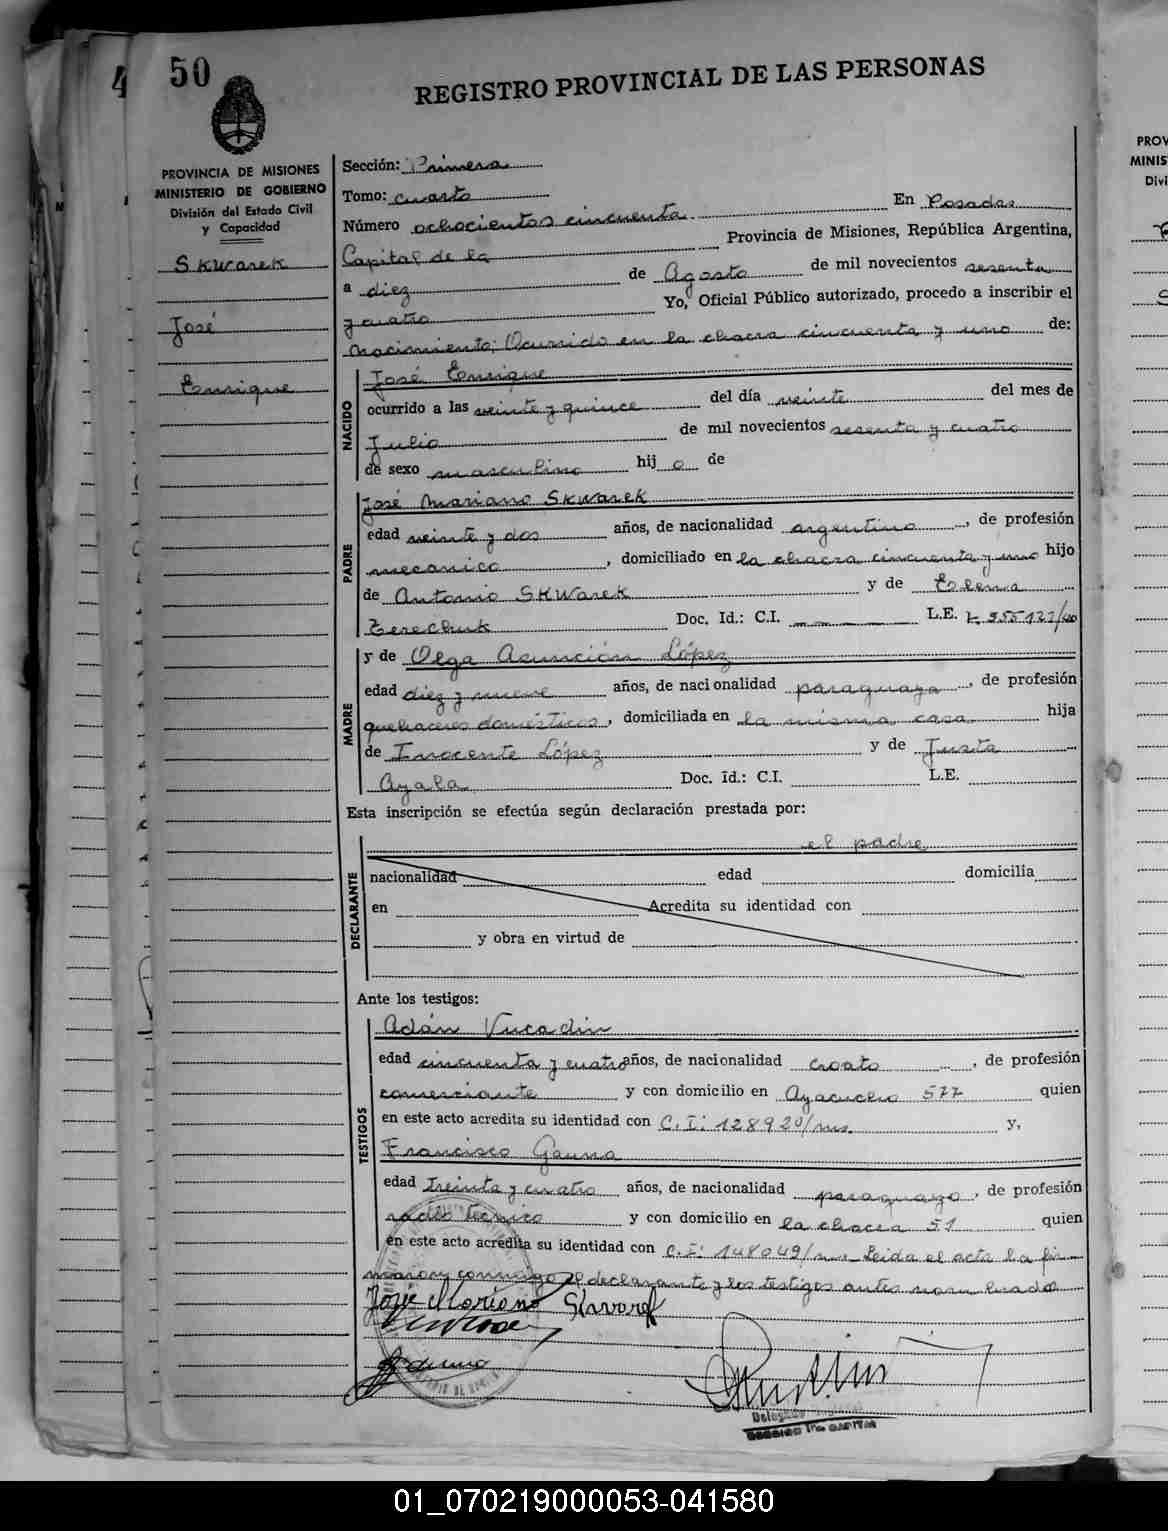 50
REGISTRO PROVINCIAL DE LAS PERSONAS
PROVINCIA DE MISIONES
MINISTERIO DE GOBIERNO
División del Estado Civil
y Capacidad
Skwarek
José
Enrique
Sección: Primera
Tomo: cuarto
Número ochocientos cincuenta En Posadas
Capital de la Provincia de Misiones, República Argentina,
a diez de Agosto de mil novecientos sesenta
y cuatro Yo, Oficial Público autorizado, procedo a inscribir el
nacimiento; Ocurrido en la chacra cincuenta y uno de:
NACIDO
José Enrique
ocurrido a las veinte y quince del día veinte del mes de
Julio de mil novecientos sesenta y cuatro
de sexo masculino hij o de
PADRE
José Mariano Skwarek
edad veinte y dos años, de nacionalidad argentino, de profesión
mecanico, domiciliado en la chacra cincuenta y uno hijo
de Antonio Skwarek y de Elena
Zerechuk Doc. Id.: C.I. L.E.
MADRE
y de Olga Asunción López
edad diez y nueve años, de nacionalidad paraguaya, de profesión
quehaceres domésticos, domiciliada en la misma casa hija
de Inocente López y de Justa
Ayala Doc. Id.: C.I. L.E.
Esta inscripción se efectúa según declaración prestada por:
el padre
DECLARANTE
nacionalidad edad domicilia
en Acredita su identidad con
y obra en virtud de
Ante los testigos:
TESTIGOS
Adán Vucadin
edad cincuenta y cuatro años, de nacionalidad croato, de profesión
comerciante y con domicilio en Ayacucho 577 quien
en este acto acredita su identidad con C.I: 128920/ms. y,
Francisco Gauna
edad treinta y cuatro años, de nacionalidad paraguayo, de profesión
radio tecnico y con domicilio en la chacra 51 quien
en este acto acredita su identidad con C.I: 148049/ms Leida el acta la fir
maron conmigo el declarante y los testigos antes nombrados
José Mariano Skwarek
01_070219000053-041580